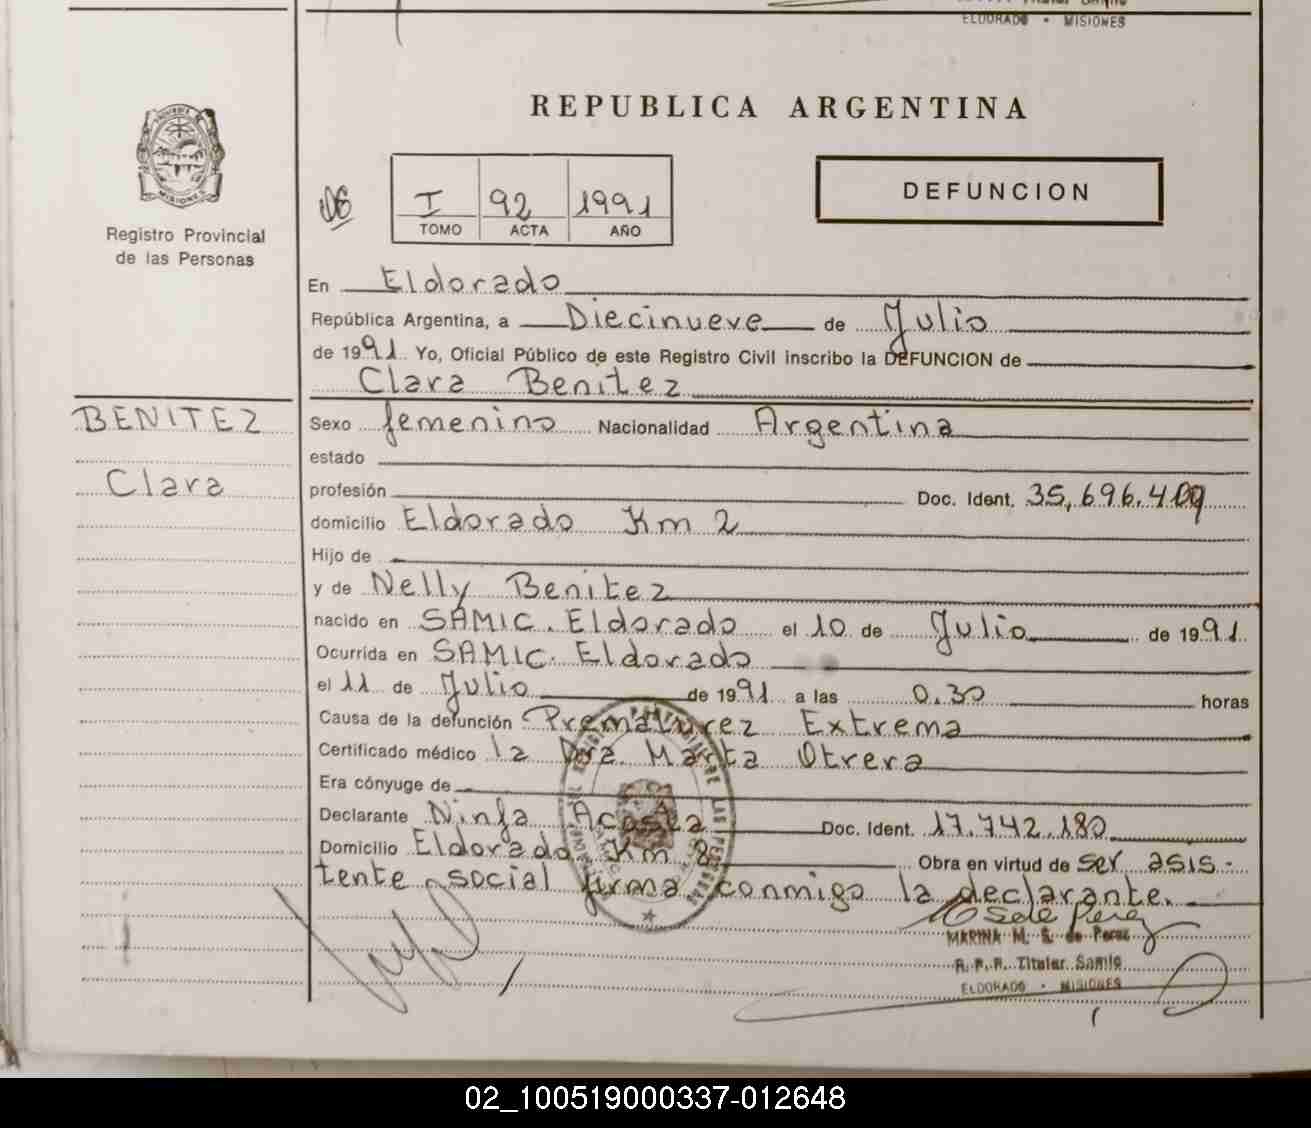 ELDORADO - MISIONES
REPUBLICA ARGENTINA
I 92 1991
TOMO ACTA AÑO
DEFUNCION
MISIONES
Registro Provincial
de las Personas
En Eldorado
República Argentina, a Diecinueve de Julio
de 1991. Yo, Oficial Público de este Registro Civil inscribo la DEFUNCION de
Clara Benitez
BENITEZ
Clara
Sexo femenino Nacionalidad Argentina
estado
profesión Doc. Ident. 35,696.409
domicilio Eldorado Km 2
Hijo de
y de Nelly Benitez
nacido en SAMIC. Eldorado el 10 de Julio de 1991.
Ocurrida en SAMIC. Eldorado
el 11 de Julio de 1991 a las 0.30 horas
Causa de la defunción Prematurez Extrema
Certificado médico la Dra. Marta Otrera
Era cónyuge de
Declarante Ninfa Acosta Doc. Ident. 17.742.180
Domicilio Eldorado Km. 8 Obra en virtud de ser asis-
tente social firma conmigo la declarante.
MARINA M. S. de Perez
R. P. P. Titular Samic
ELDORADO - MISIONES
02_100519000337-012648